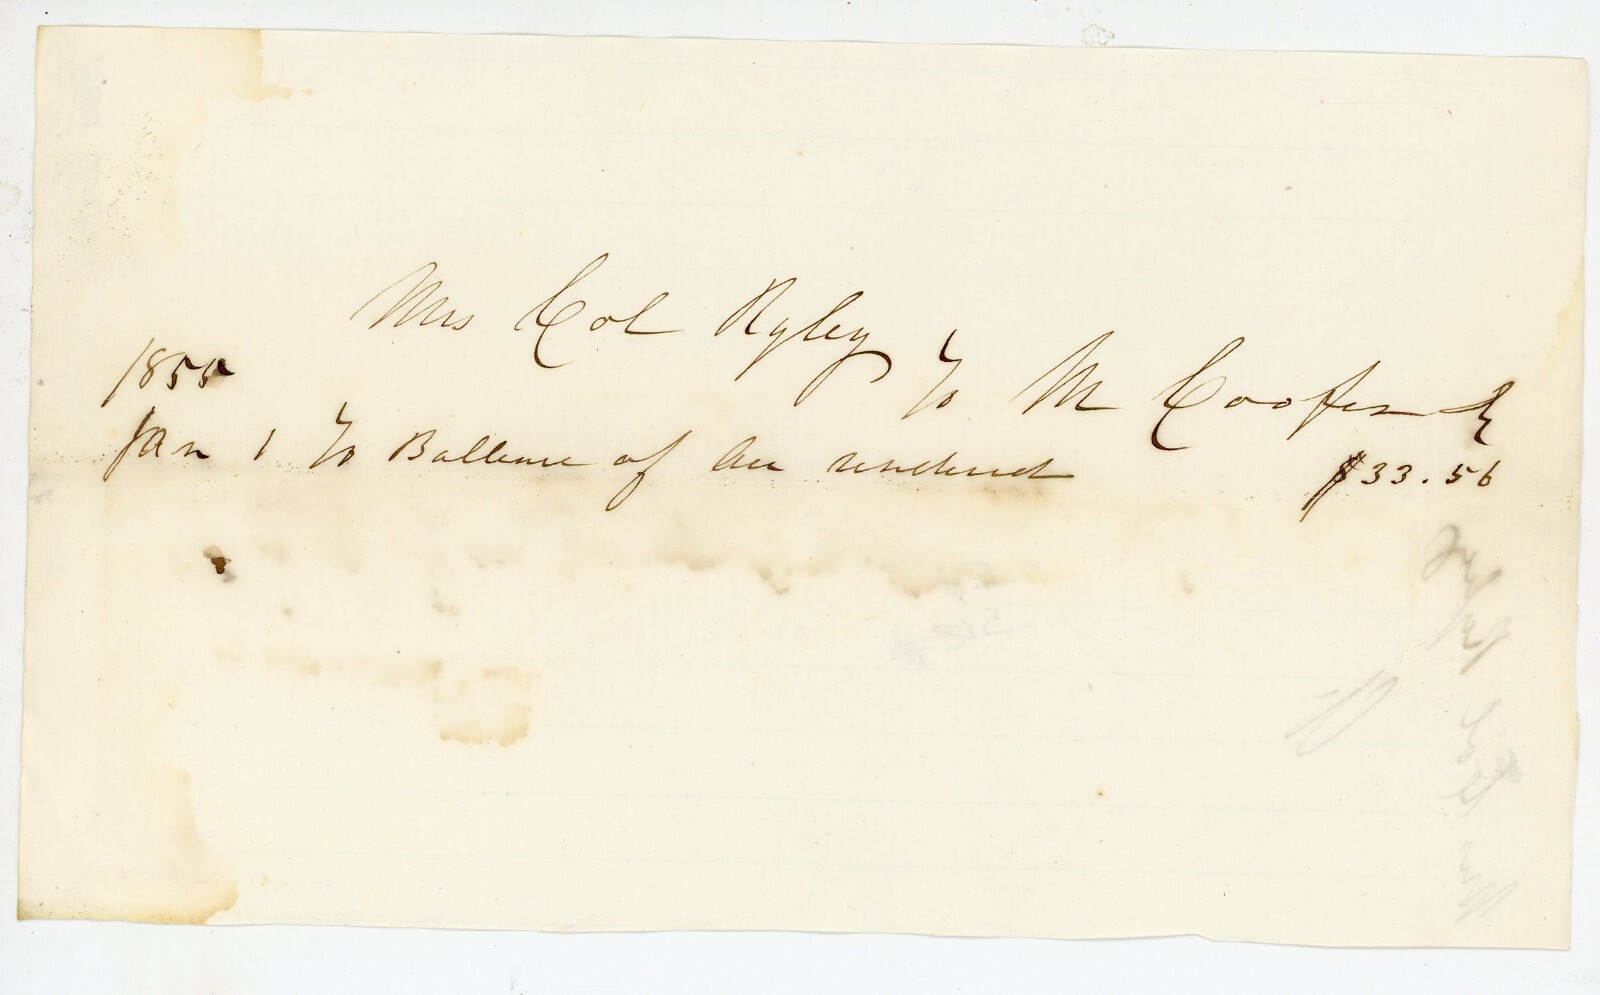 Mrs Col Ryley To M Cooper
1855
Jan 1 To Ballence of Acc rendered $33.56